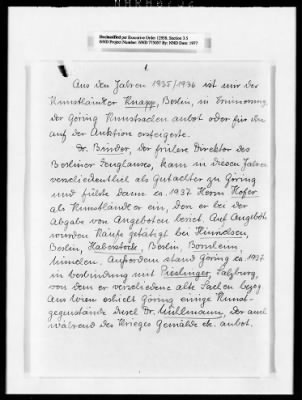 Declassified per Executive Order 12958, Section 3.5
NND Project Number: NND 775057 By: NND Date: 1977
1.
Aus den Jahren 1935/1936 ist mir der
Kunsthändler Knapp, Berlin, in Erinnerung,
der Göring Kunstsachen anbot oder für ihn
auf der Auktion ersteigerte.
Dr. Binder, der frühere Direktor des
Berliner Zeughauses, kam in diesen Jahren
verschiedentlich als Gutachter zu Göring
und führte dann ca. 1937 Herrn Hofer
als Kunsthändler ein, den er bei der
Abgabe von Angeboten beriet. Auf Angebote
wurden Käufe getätigt bei
Berlin, Haberstock, Berlin Bornheim,
München. Außerdem stand Göring ca. 1937
in Verbindung mit Salzburg,
von dem er verschiedene alte Sachen bezog.
Aus Wien erhielt Göring einige Kunst-
gegenstände durch Dr. Mühlmann, der auch
während des Krieges Gemälde etc. anbot.